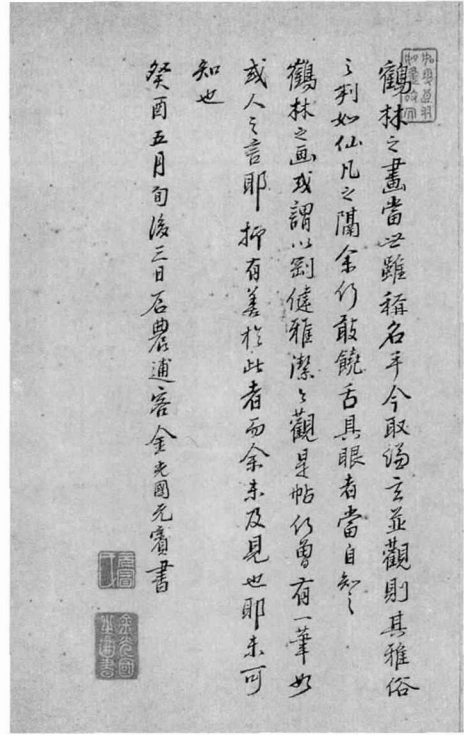 鶴林之畫當世雖稱名手今取謙玄並觀則其雅俗
之判如仙凡之隔余何敢饒舌具眼者當自知之
鶴林之画或謂以剴健雅潔今觀是帖何曾有一筆如
或人之言耶抑有善於此者而余未及見也耶未可
知也
癸酉五月旬後三日石農逋客金光國元賓書
金光國